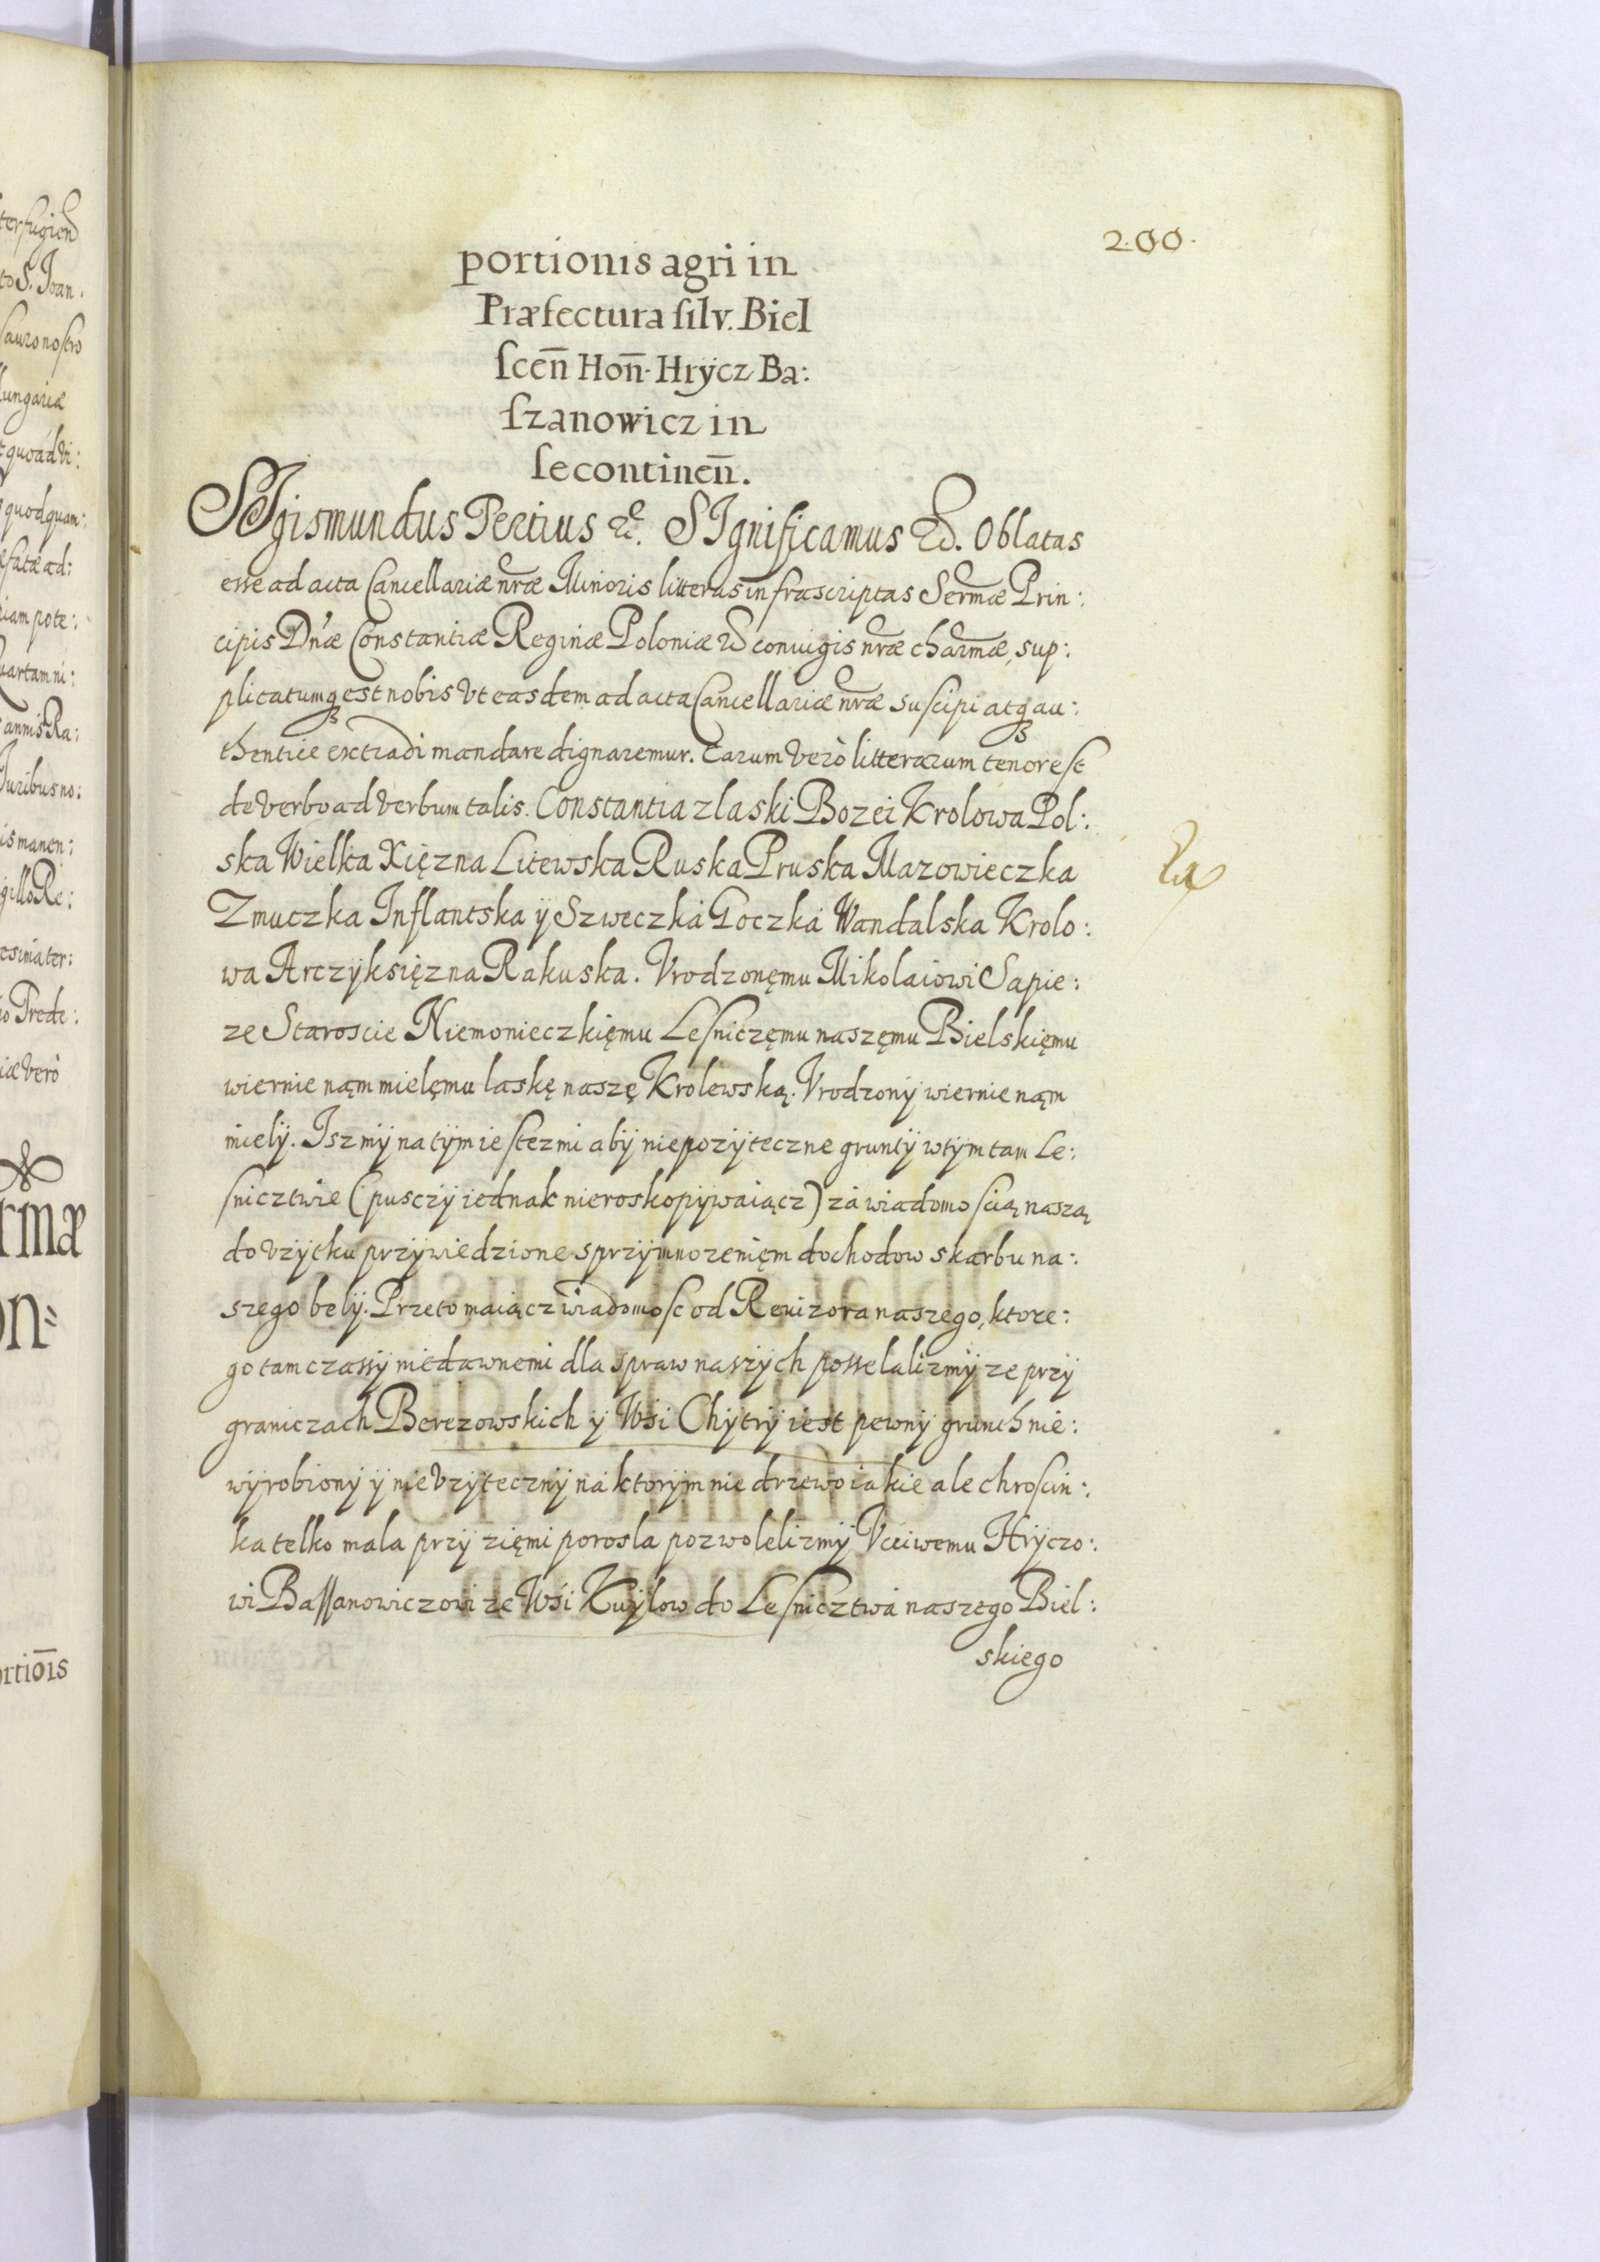 200.
portionis agri in
Præfectura silv. Biel
scen̄ Hon̄. Hrÿcz Ba:
szanowicz in
se continen̄.
SIgismundus Tertius &c. SIgnificamus &c. Oblatas
esse ad acta Cancellariæ nr̄æ Minoris litteras infrascriptas Serm̄æ Prin:
cipis Dn̄æ Constantiæ Reginæ Poloniæ &c coniugis nr̄æ charm̄æ, sup:
plicatumq3 est nobis Vt easdem ad acta Cancellariæ nr̄æ suscipi atq3 au:
thentice extradi mandare dignaremur. Earum Verò litterarum tenor est
de Verbo ad Verbum talis. Constantia z laski Bozei Krolowa Pol:
ska Wielka Xięzna Litewska Ruska Pruska Mazowieczka
Zmuczka Inflantska ÿ Szweczka Goczka Wandalska Krolo:
wa Arczÿksięzna Rakuska. Vrodzonęmu Mikolaiowi Sapie:
ze Staroscie Niemonieczkięmu Lesniczęmu naszęmu Bielskięmu
wiernie nąm mielęmu laskę naszę Krolewską. Vrodzonÿ wiernie nąm
mielÿ. Isz mÿ na tÿm iestezmi abÿ niepozÿteczne gruntÿ w tÿm tam Le:
snicztwie (pusczÿ iednak nieroskopÿwaiącz) za wiadomoscią naszą
do Vzÿtku przÿwiedzione s przÿmnozenięm dochodow skarbu na:
szego belÿ. Przeto maiącz wiadomosc od Reuizora naszego, ktore:
go tam czassÿ niedawnemi dla spraw naszÿch posselalizmÿ ze przÿ
graniczach Berezowskich ÿ Wsi Chÿtrÿ iest pewnÿ grunth nie:
wÿrobionÿ ÿ nieVzÿtecznÿ na ktorÿm nie drzewo iakie ale chroscin:
ka telko mala przÿ zięmi porosla pozwolelizmÿ Vcciwemu Hrÿczo:
wi Bassanowiczowi ze Wsi Kuÿlow do Lesnicztwa naszego Biel:
skiego